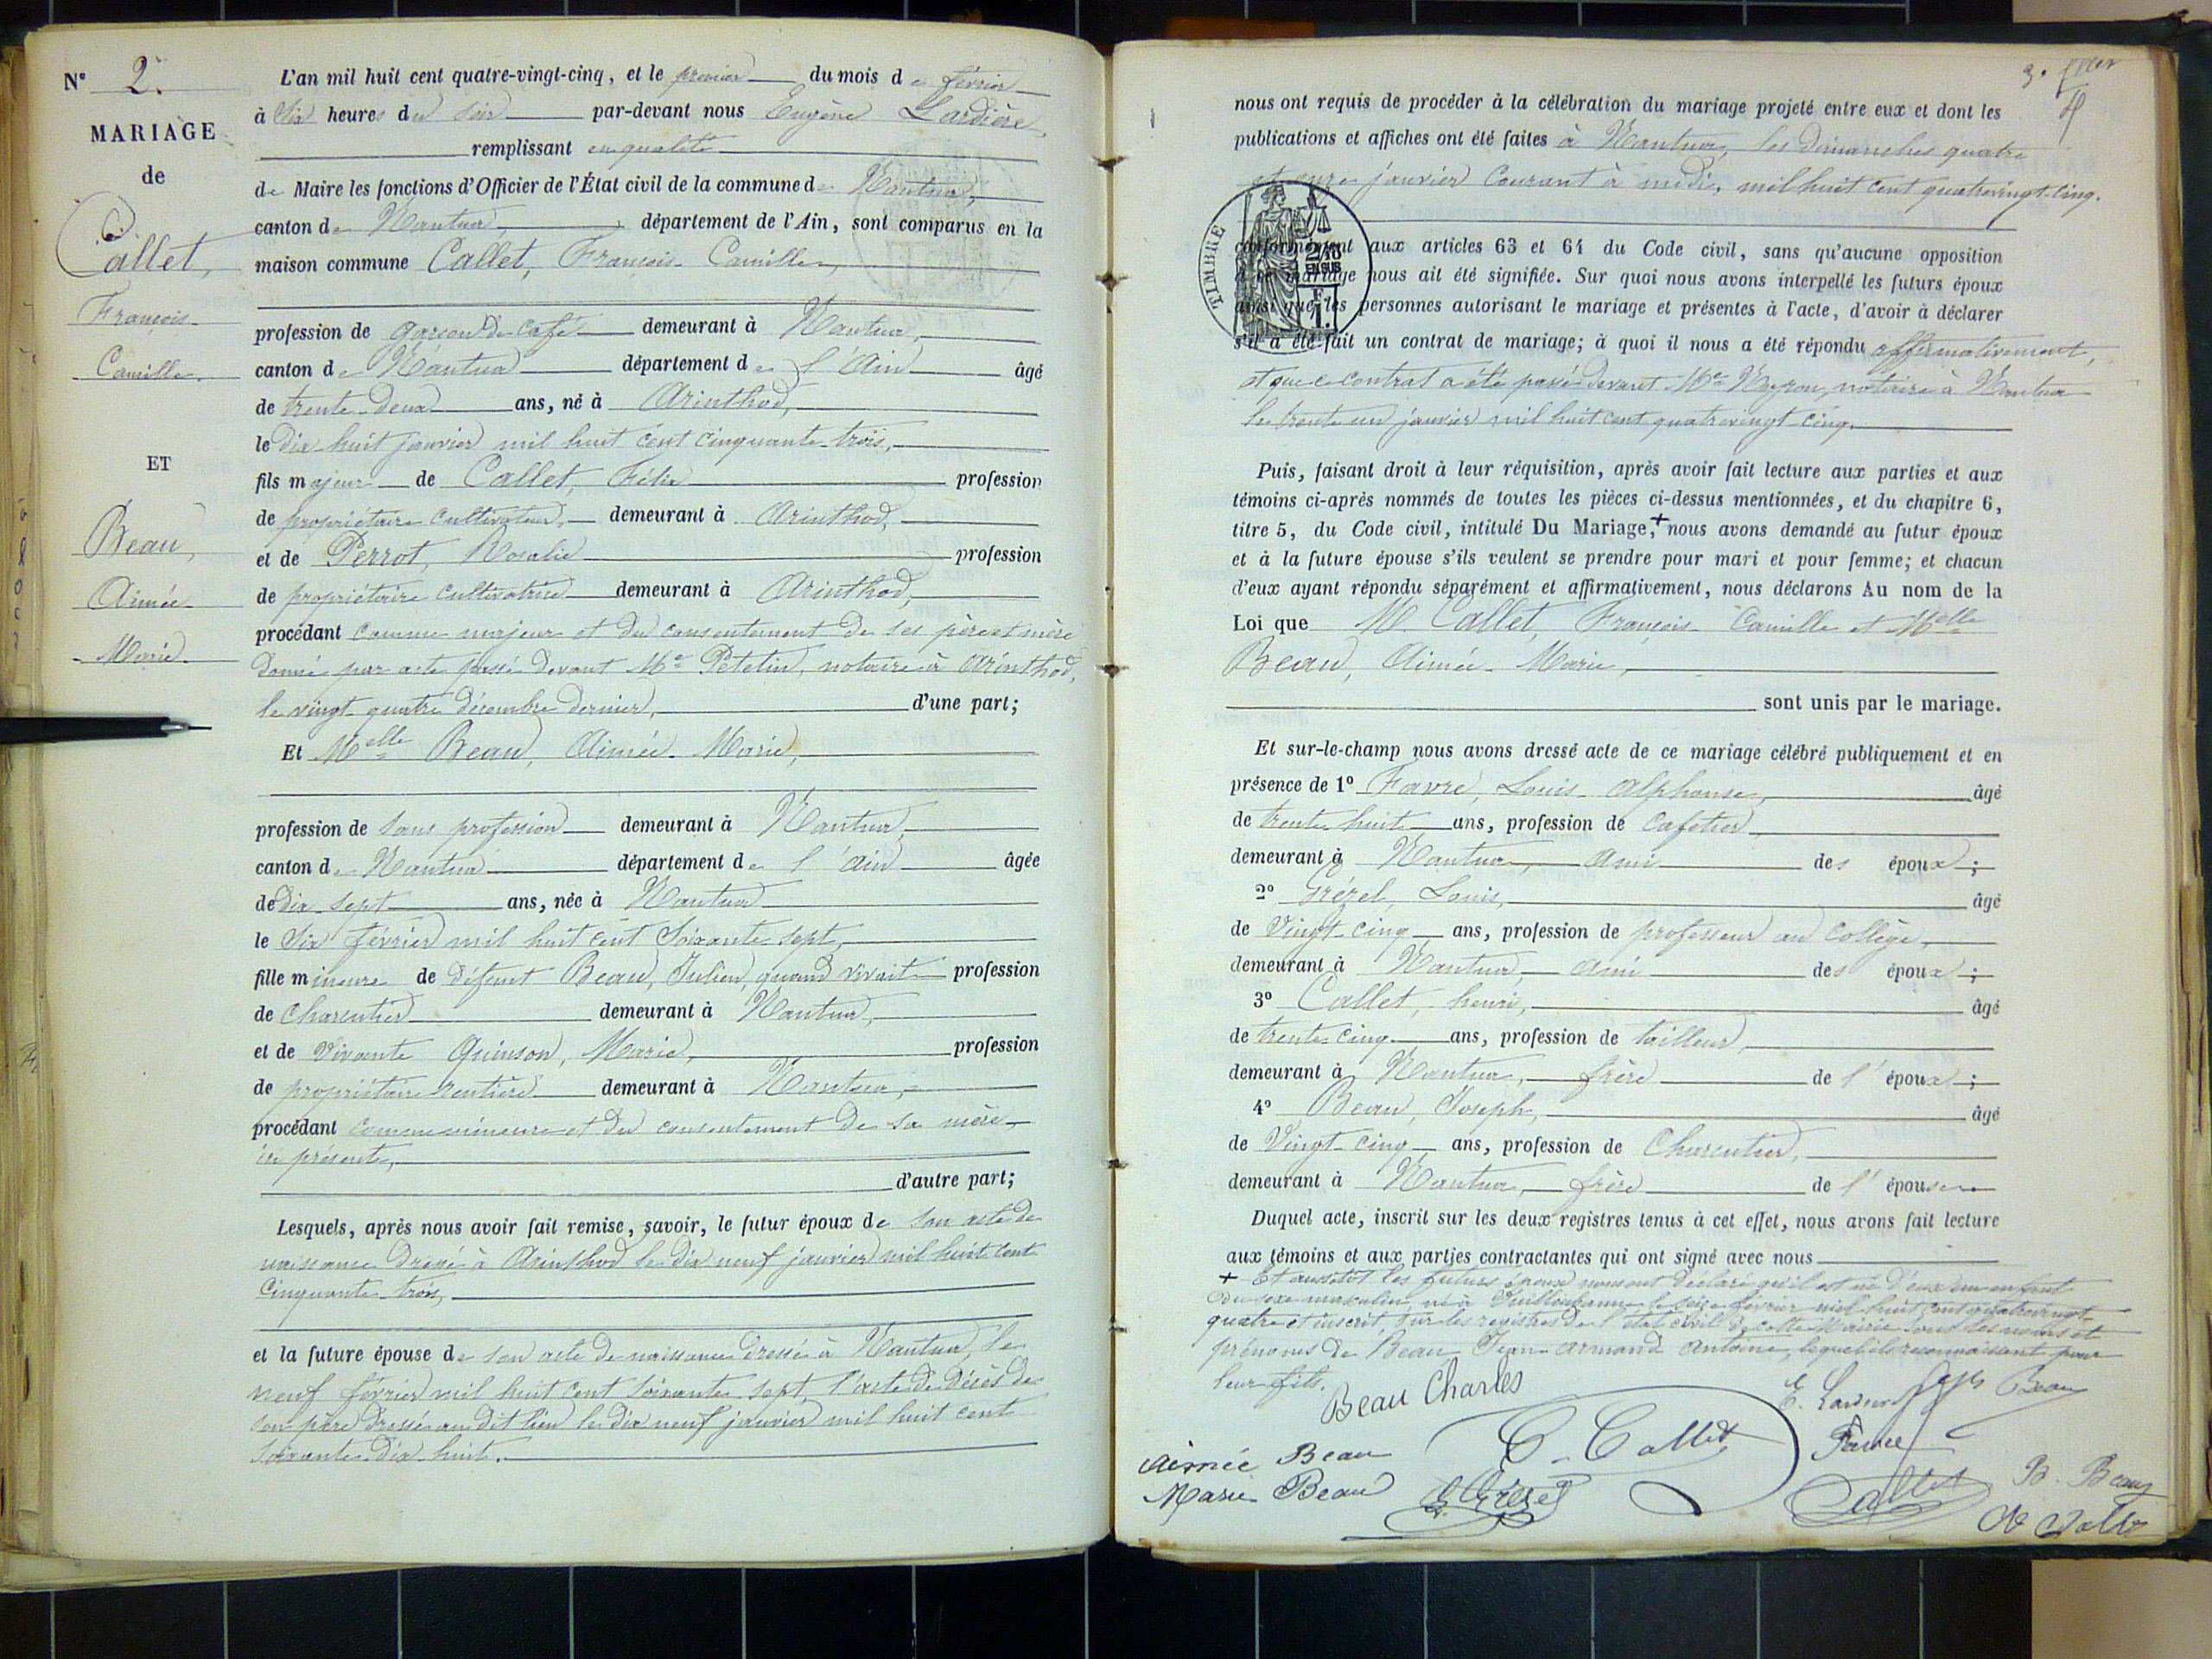 N° 2.
MARIAGE
de
Callet,
François
Camille.
ET
Beau,
Aimée
Marie
L'an mil huit cent quatre-vingt-cinq, et le premier du mois de février
à Six heures du soir par-devant nous Eugène Lardière,
remplissant en qualité
de Maire les fonctions d'Officier de l'État civil de la commune de Nantua,
canton de Nantua, département de l'Ain, sont comparus en la
maison commune Callet, François Camille,
profession de garçon de café demeurant à Nantua,
canton de Nantua département de l'Ain âgé
de trente-deux ans, né à Arinthod,
le dix-huit janvier mil huit cent cinquante-trois,
fils majeur de Callet, Félix profession
de propriétaire cultivateur, demeurant à Arinthod,
et de Perrot, Rosalie profession
de propriétaire cultivatrice demeurant à Arinthod,
procédant comme majeur et du consentement de ses père et mère
donné par acte passé devant Me Petetin, notaire à Arinthod,
le vingt-quatre décembre dernier, d'une part;
Et Melle Beau, Aimée Marie,
profession de sans profession demeurant à Nantua,
canton de Nantua département de l'Ain âgée
de dix-sept ans, née à Nantua
le Six février mil huit cent soixante-sept,
fille mineure de défunt Beau, Julien, quand vivait profession
de Charcutier demeurant à Nantua,
et de vivante Guinson, Marie, profession
de propriétaire rentière demeurant à Nantua,
procédant comme mineure et du consentement de sa mère
ici présente,
d'autre part;
Lesquels, après nous avoir fait remise, savoir, le futur époux de son acte de
naissance dressé à Arinthod le dix neuf janvier mil huit cent
cinquante-trois,
et la future épouse de son acte de naissance dressé à Nantua, le
neuf février mil huit cent soixante-sept, l'acte de décès de
son père dressé au dit lieu le dix neuf janvier mil huit cent
soixante-dix-huit.
nous ont requis de procéder à la célébration du mariage projeté entre eux et dont les
publications et affiches ont été faites à Nantua, les dimanches quatre
et onze janvier courant à midi, mil huit cent quatrevingt-cinq.
TIMBRE
conformément aux articles 63 et 64 du Code civil, sans qu'aucune opposition
à ce mariage nous ait été signifiée. Sur quoi nous avons interpellé les futurs époux
ainsi que les personnes autorisant le mariage et présentes à l'acte, d'avoir à déclarer
s'il a été fait un contrat de mariage; à quoi il nous a été répondu affirmativement,
et que ce contrat a été passé devant Me Neyron, notaire à Nantua
le trente un janvier mil huit cent quatrevingt-cinq.
Puis, faisant droit à leur réquisition, après avoir fait lecture aux parties et aux
témoins ci-après nommés de toutes les pièces ci-dessus mentionnées, et du chapitre 6,
titre 5, du Code civil, intitulé Du Mariage,+ nous avons demandé au futur époux
et à la future épouse s'ils veulent se prendre pour mari et pour femme; et chacun
d'eux ayant répondu séparément et affirmativement, nous déclarons Au nom de la
Loi que M. Callet, François Camille et Melle
Beau, Aimée Marie,
sont unis par le mariage.
Et sur-le-champ nous avons dressé acte de ce mariage célébré publiquement et en
présence de 1° Favre, Louis Alphonse, âgé
de trente huit ans, profession de Cafetier
demeurant à Nantua, Ami des époux;
2° Grézel, Louis, âgé
de Vingt-cinq ans, profession de professeur au Collège,
demeurant à Nantua, ami des époux;
3° Callet, henri, âgé
de trente-cinq ans, profession de tailleur,
demeurant à Nantua, frère de l'époux;
4° Beau, Joseph, âgé
de Vingt-cinq ans, profession de Charcutier,
demeurant à Nantua, frère de l'épouse
Duquel acte, inscrit sur les deux registres tenus à cet effet, nous avons fait lecture
aux témoins et aux parties contractantes qui ont signé avec nous
+ Et aussitôt les futurs époux nous ont déclaré qu'il est né d'eux un enfant
du sexe masculin, né à Villeurbanne le seize février mil huit cent quatrevingt-
quatre et inscrit sur les registres de l'état civil de cette Mairie sous les noms et
prénoms de Beau Jean Armand Antoine, lequel ils reconnaissent pour
leur fils.
Beau Charles
E. Lardière
Beau
Aimée Beau
C. Callet
Favre
Marie Beau
L. Grézel
Callet
B. Beau